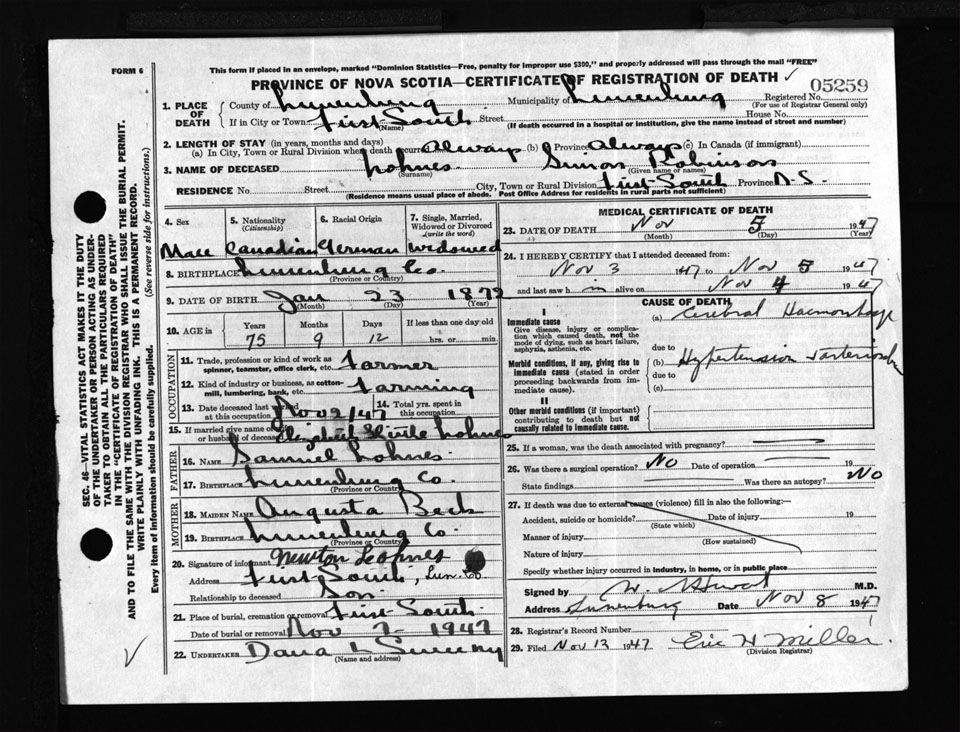 This form if placed in an envelope, marked "Dominion Statistics—Free, penalty for improper use $300," and properly addressed will pass through the mail "FREE"
FORM 6
PROVINCE OF NOVA SCOTIA—CERTIFICATE OF REGISTRATION OF DEATH ✓
05259
1. PLACE OF DEATH
County of Lunenburg Municipality of Lunenburg Registered No.
(For use of Registrar General only)
If in City or Town First South Street House No.
(Name) (If death occurred in a hospital or institution, give the name instead of street and number)
2. LENGTH OF STAY (in years, months and days)
(a) In City, Town or Rural Division where death occurred Always (b) Province Always (c) In Canada (if immigrant)
3. NAME OF DECEASED Lohnes Simon Robinson
(Surname) (Given name or names)
RESIDENCE No. Street City, Town or Rural Division First South Province N.S.
(Residence means usual place of abode. Post Office Address for residents in rural parts not sufficient)
4. Sex 5. Nationality (Citizenship) 6. Racial Origin 7. Single, Married, Widowed or Divorced (write the word)
Male Canadian German Widowed
8. BIRTHPLACE Lunenburg Co.
(Province or Country)
9. DATE OF BIRTH Jan 23 1872
(Month) (Day) (Year)
10. AGE in Years Months Days If less than one day old
75 9 12 hrs. or min.
OCCUPATION
11. Trade, profession or kind of work as spinner, teamster, office clerk, etc. Farmer
12. Kind of industry or business, as cotton-mill, lumbering, bank, etc. Farming
13. Date deceased last worked at this occupation Nov 2/47 14. Total yrs. spent in this occupation
15. If married give name of wife or husband of deceased Elizabeth Lohnes
FATHER
16. NAME Samuel Lohnes.
17. BIRTHPLACE Lunenburg Co.
(Province or Country)
MOTHER
18. MAIDEN NAME Augusta Beck
19. BIRTHPLACE Lunenburg Co.
(Province or Country)
20. Signature of informant Newton Lohnes
Address First South, Lun. Co
Relationship to deceased Son.
21. Place of burial, cremation or removal First South.
Date of burial or removal Nov 7. 1947
22. UNDERTAKER Dana L Sweeny
(Name and address)
MEDICAL CERTIFICATE OF DEATH
23. DATE OF DEATH Nov 5 1947
(Month) (Day) (Year)
24. I HEREBY CERTIFY that I attended deceased from:
Nov 3 1947 to Nov 5 1947
and last saw h m alive on Nov 4 1947
CAUSE OF DEATH
I
Immediate cause
Give disease, injury or complication which caused death, not the mode of dying, such as heart failure, asphyxia, asthenia, etc.
(a) Cerebral Haemorrhage
due to
Morbid conditions, if any, giving rise to immediate cause (stated in order proceeding backwards from immediate cause).
(b) Hypertension
due to
(c)
II
Other morbid conditions (if important) contributing to death but not causally related to immediate cause.
25. If a woman, was the death associated with pregnancy?
26. Was there a surgical operation? No Date of operation 19
State findings Was there an autopsy? No
27. If death was due to external causes (violence) fill in also the following:—
Accident, suicide or homicide? Date of injury 19
(State which)
Manner of injury
(How sustained)
Nature of injury
Specify whether injury occurred in industry, in home, or in public place
Signed by M.D.
Address Lunenburg Date Nov 8 1947
28. Registrar's Record Number
29. Filed Nov 13 1947 Eric H Miller
(Division Registrar)
SEC. 46—VITAL STATISTICS ACT MAKES IT THE DUTY
OF THE UNDERTAKER OR PERSON ACTING AS UNDER-
TAKER TO OBTAIN ALL THE PARTICULARS REQUIRED
IN THE "CERTIFICATE OF REGISTRATION OF DEATH"
AND TO FILE THE SAME WITH THE DIVISION REGISTRAR WHO SHALL ISSUE THE BURIAL PERMIT.
WRITE PLAINLY WITH UNFADING INK. THIS IS A PERMANENT RECORD.
Every item of information should be carefully supplied. (See reverse side for instructions.)